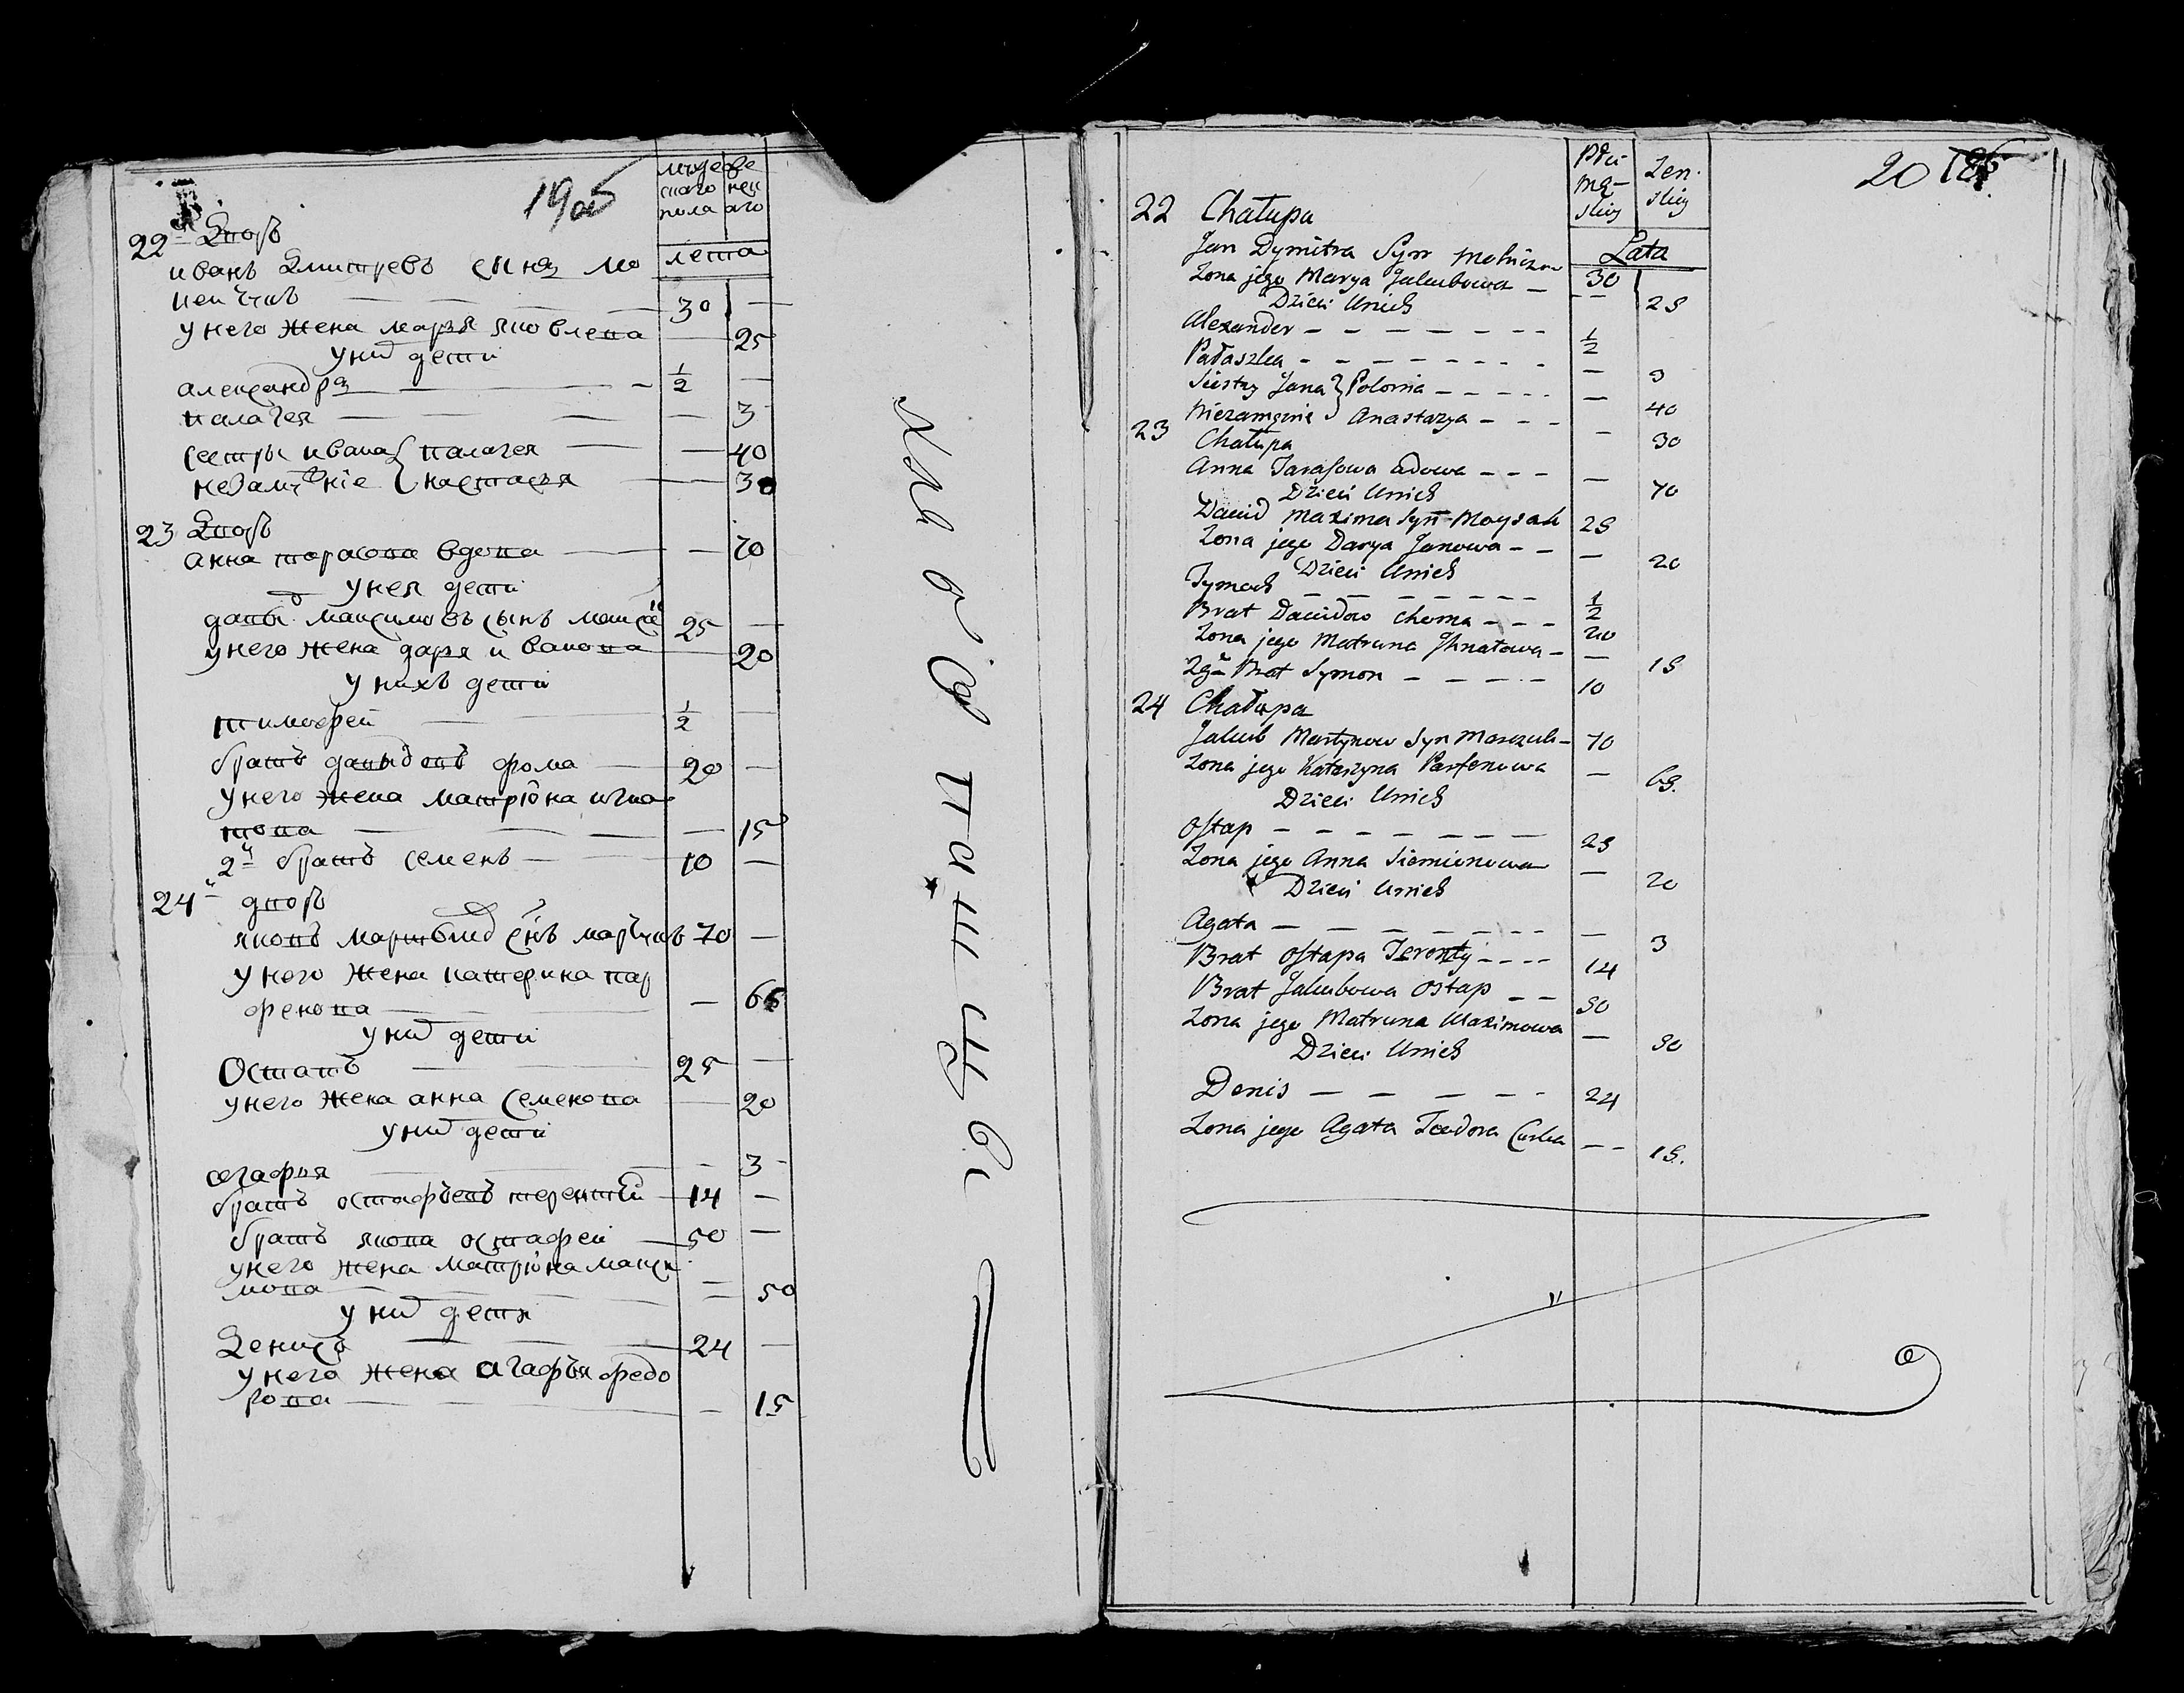 19 об
мужеска́го пола
женскаго
лета
22й Дворъ
иванъ Дмитревъ сынъ мо
нечукъ — 30 —
у него жена марья яковлева — 25
у них дети
александръ — 1/2 —
палагея — 3
сестры ивана { палагея — 40
незамужние { настасья — 30
23 Дворъ
анна тарасова вдова — 70
у нея дети
давыд максимовъ сынъ 25 —
у него жена дарья иванова — 20
у нихъ дети
тимофей 1/2 —
братъ давыдовъ фома — 20 —
у него жена матрiона игна
това — 15
2й братъ семенъ — 10 —
24й дворъ
яковъ 70 —
у него жена катерина пар
фенова — 65
у них дети
Остапъ 25 —
у него жена анна семенова — 20
у них дети
агафья — 3
братъ остафьевъ терентий 14 —
братъ якова остафей 50 —
у него жена матрiона макси
мова — 50
у них дети
Денисъ 24 —
у него жена агафья федо
рова — 15
20
Płci
mę-
skiey
Żen.
skiey
Lata
22 Chałupa
Jan Dymitra Syn 30
Żona jego Marya Jakubowa — 25
Dzieci Unich
Alexander 1/2
Pałaszka — 3
Siestry Jana } Polonia — 40
Niezamężnie } Anastazya — 30
23 Chałupa
Anna Tarasowa wdowa — 70
Dzieci Unich
Dawid Maxima Syn Moysak 25
Żona jego Darya Janowa — 20
Dzieci Unich
Tymoch 1/2
Brat Dawidow Choma 20
Żona jego Matruna Ihnatowa — 15
2gi Brat Symon 10
24 Chałupa
Jakub Martynow Syn Marczuk 70
Żona jego Katarzyna Parfenowa — 65.
Dzieci Unich
Ostap 25
Żona jego Anna Siemionowa — 20
Dzieci Unich
Agata — 3
Brat Ostapa Teronty 14
Brat Jakubowa Ostap 50
Żona jego Matruna Maximowa — 50
Dzieci Unich
Denis 24
Żona jego Agata Teodora Curka — 15.